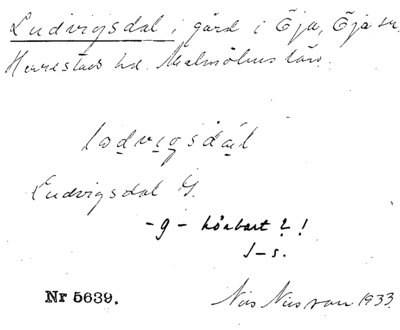 Ludvigsdal, gård i Öja, Öja sn.
Herrestads hd. Malmöhus län.
lɷdvigsdál
Ludvigsdal G.
-g- hörbart?!
J-s.
Nr 5639. Nils Nilsson 1933.